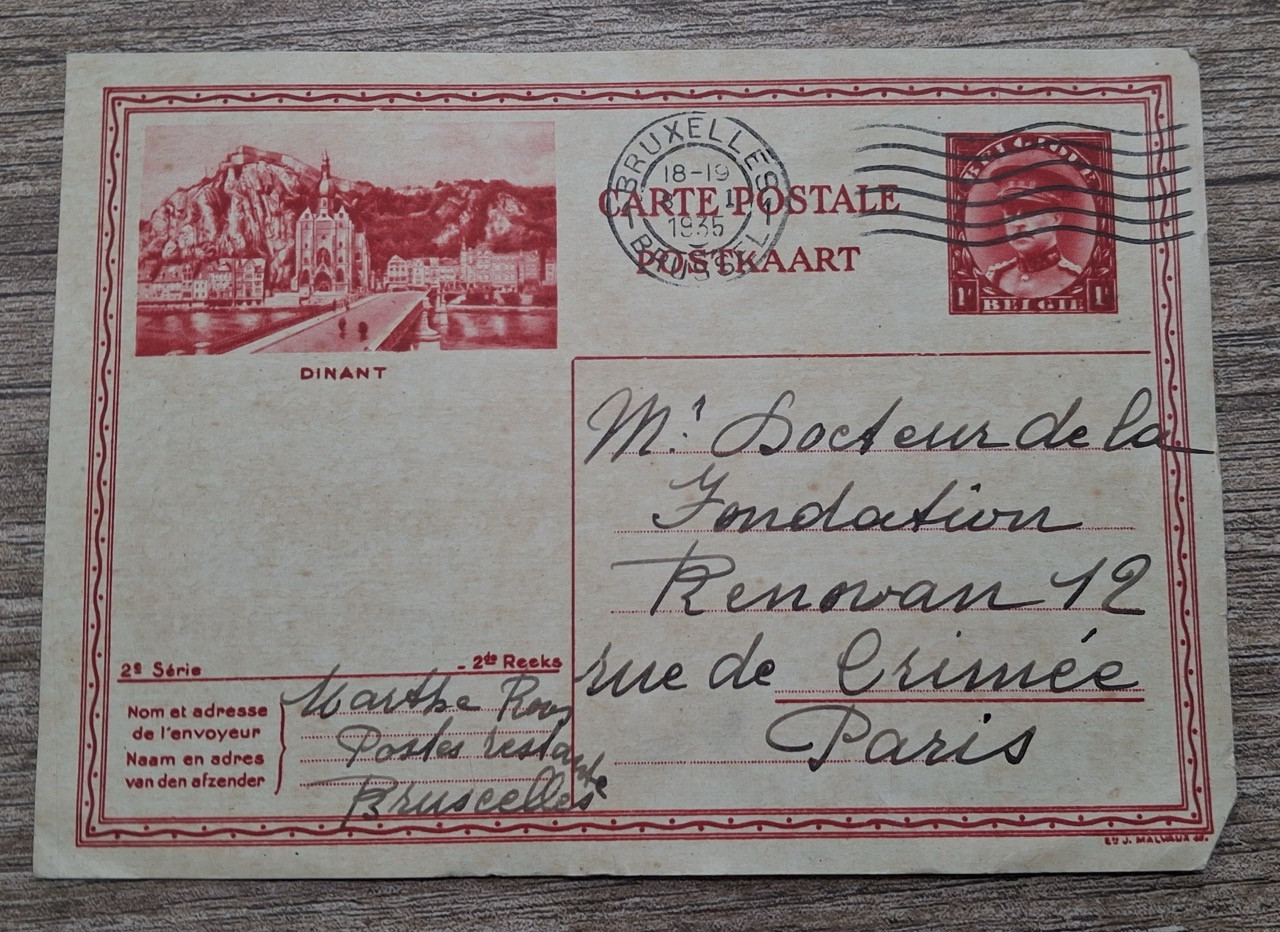 BRUXELLES 1
18-19
8 I
1935
BRUSSEL
CARTE POSTALE
POSTKAART
BELGIQUE
1F 1F
BELGIE
DINANT
Mr. Docteur de la
Fondation
Renowan 12
rue de Crimée
Paris
2e Série - 2de Reeks
Nom et adresse
de l'envoyeur
Naam en adres
van den afzender
Marthe
Postes restante
Bruscelles
Ets J. MALVAUX